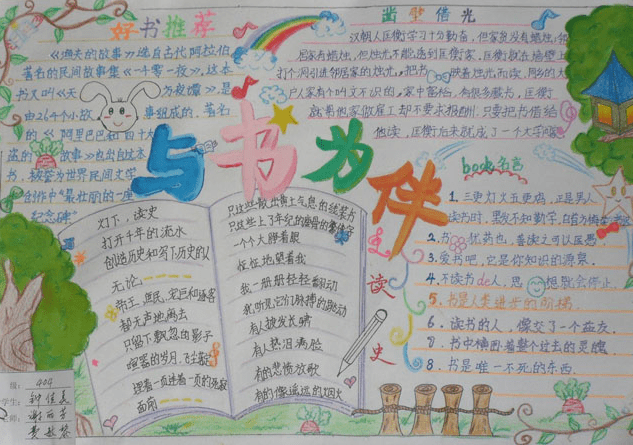 好书推荐
《渔夫的故事》选自古代阿拉伯
著名的民间故事集《一千零一夜》,这本
书又叫《天方夜谭》,是
由264个小故事组成的,著名
的《阿里巴巴和四十大
盗的故事》也出自这本
书,被誉为世界民间文学
创作中"最壮丽的一座
纪念碑"
凿壁借光
汉朝人匡衡学习十分勤奋,但家贫没有蜡烛,邻
居家有蜡烛,但烛光不能透到匡衡家,匡衡就在墙壁上
打个洞引进邻居家的烛光,把书映着烛光而读。同乡的大
户人家有个叫文不识的,家中富裕,有很多藏书,匡衡
就果他家做雇工却不要求报酬,只要把书借给
他读,匡衡后来就成了一个大学
与书为伴
灯下,读史
打开千年的流水
创造历史和写下历史的人
无论:
帝王、庶民、宠臣和逐客
都无声地离去
只留下飘忽的影子
喧嚣的岁月,飞尘散
埋着一页连着一页的死寂
面前
只这些散出黄土气息的线装书
一个大睁着眼
怔怔地望着我
我一册册轻轻翻动
我听见它们脉搏的跳动
有人披发长啸
有人热泪满脸
有的悲愤放歌
有的像遥远的烟火
读史
book名言
1.三更灯火五更鸡,正是男人
读书时,黑发不知勤学
2.书犹药也,善读之可以医愚
3.爱书吧,它是你知识的源泉
4.不读书de人,思想就会停止。
5.书是人类进步的阶梯.
6.读书的人,像交了一个益友.
7.书中横卧着整个过去的灵魂
8.书是唯一不死的东西.
级:404
学生: